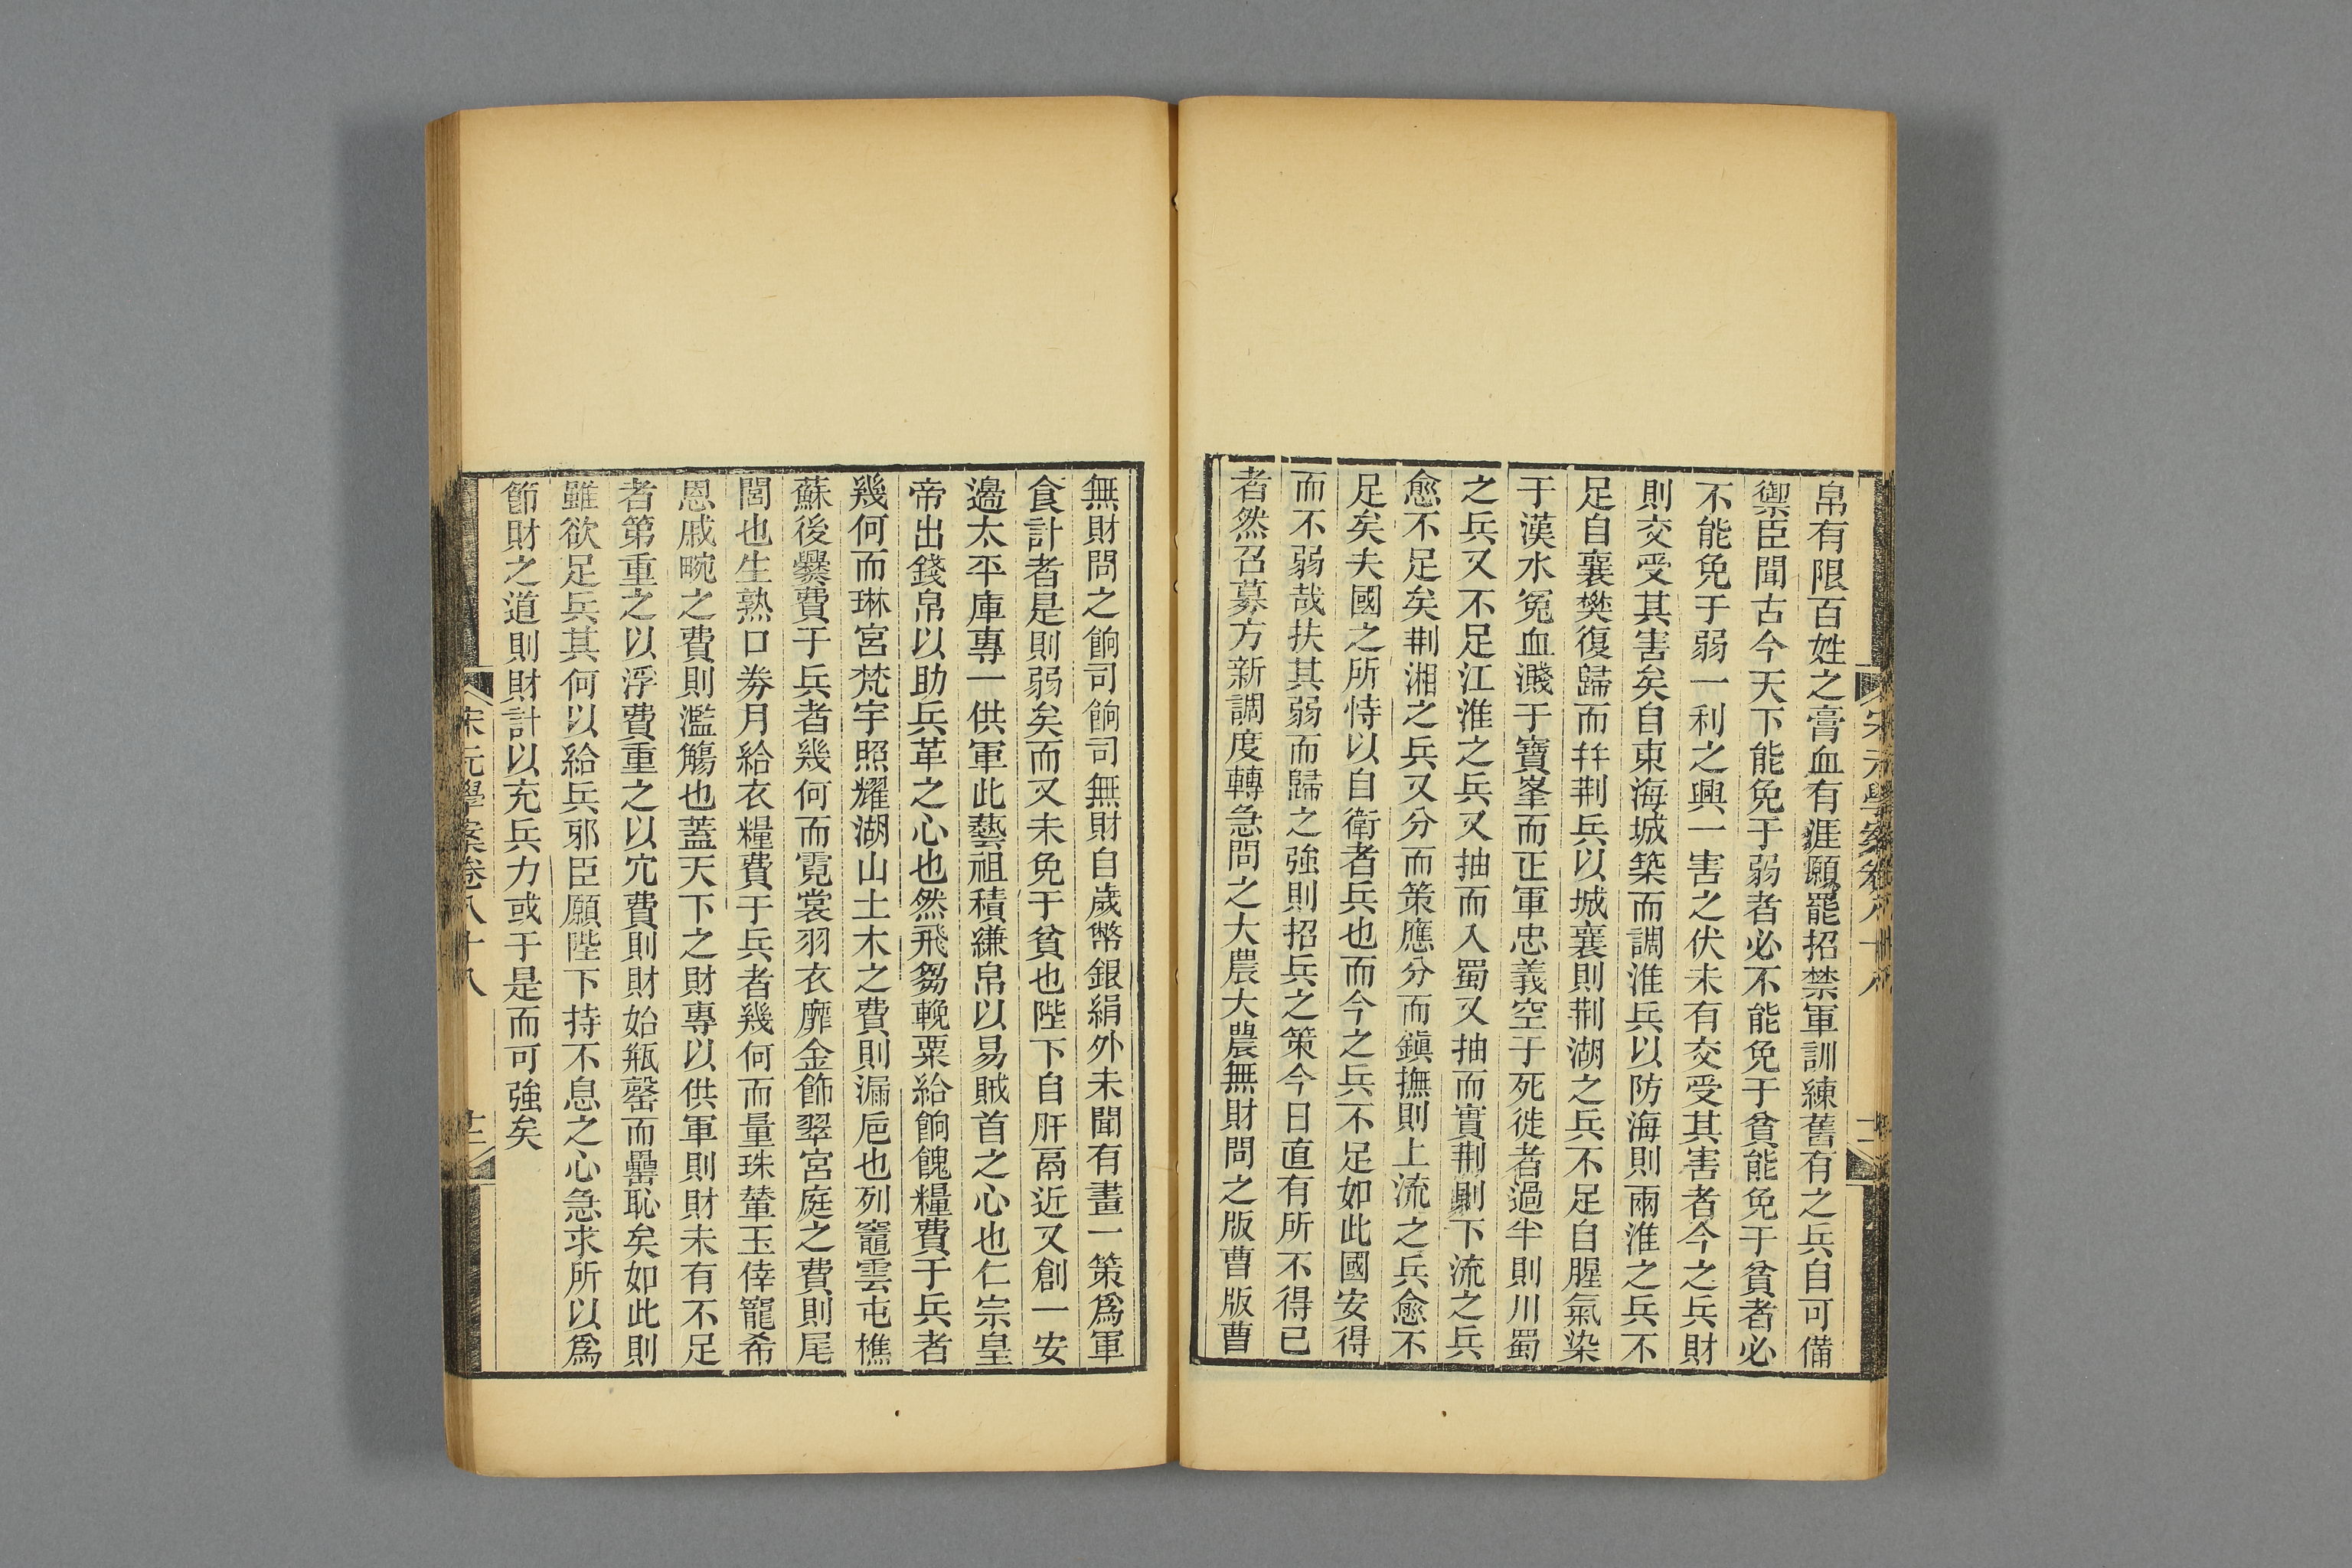 帛有限百姓之膏血有涯願罷招禁軍訓練舊有之兵自可備
禦臣聞古今天下能免于弱者必不能免于貧能免于貧者必
不能免于弱一利之興一害之伏未有交受其害者今之兵財
則交受其害矣自東海城築而調淮兵以防海則兩淮之兵不
足自襄樊復歸而幷荆兵以城襄則荆湖之兵不足自腥氣染
于漢水冤血濺于寶峯而正軍忠義空于死徙者過半則川蜀
之兵又不足江淮之兵又抽而入蜀又抽而實荆則下流之兵
愈不足矣荆湘之兵又分而策應分而鎭撫則上流之兵愈不
足矣夫國之所恃以自衛者兵也而今之兵不足如此國安得
而不弱哉扶其弱而歸之強則招兵之策今日直有所不得已
者然召募方新調度轉急問之大農大農無財問之版曹版曹
無財問之餉司餉司無財自歲幣銀絹外未聞有畫一策爲軍
食計者是則弱矣而又未免于貧也陛下自肝鬲近又創一安
邊太平庫專一供軍此藝祖積縑帛以易賊首之心也仁宗皇
帝出錢帛以助兵革之心也然飛芻輓粟給餉餽糧費于兵者
幾何而琳宮梵宇照耀湖山土木之費則漏卮也列竈雲屯樵
蘇後爨費于兵者幾何而霓裳羽衣靡金飾翠宮庭之費則尾
閭也生熟口劵月給衣糧費于兵者幾何而量珠輦玉倖寵希
恩戚畹之費則濫觴也蓋天下之財專以供軍則財未有不足
者第重之以浮費重之以冗費則財始瓶罄而罍恥矣如此則
雖欲足兵其何以給兵邪臣願陛下持不息之心急求所以爲
節財之道則財計以充兵力或于是而可強矣
宋元學案卷八十八